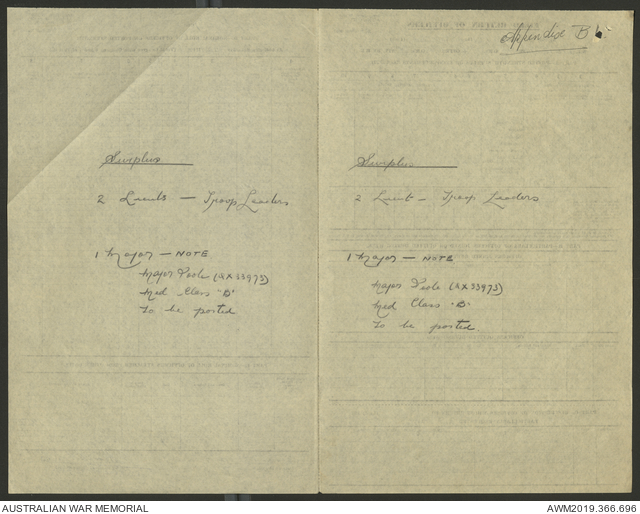 Appendix B
Surplus
2 Lieuts — Troop Leaders
1 Major — NOTE
Major Poole (QX33973)
Med Class "B"
To be posted
Surplus
2 Lieut - Troop Leaders
1 Major — NOTE
Major Poole (QX33973)
Med Class "B"
To be posted
AUSTRALIAN WAR MEMORIAL
AWM2019.366.696